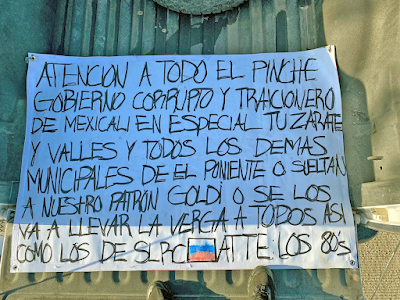 ATENCION A TODO EL PINCHE
GOBIERNO CORRUPTO Y TRAICIONERO
DE MEXICALI EN ESPECIAL TU ZARATE
Y VALLES Y TODOS LOS DEMAS
MUNICIPALES DE EL PONIENTE O SUELTAN
A NUESTRO PATRÓN GOLDI O SE LOS
VA A LLEVAR LA VERGA A TODOS ASI
COMO LOS DE SLRC ATTE LOS 80's